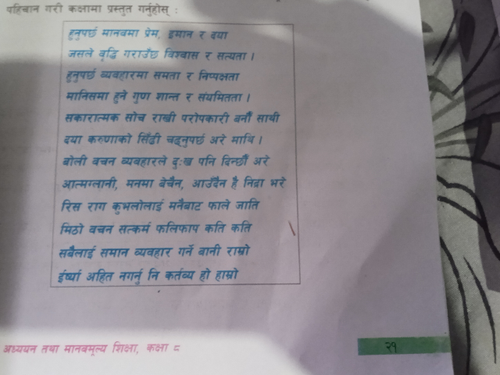 पहिचान गरी कक्षामा प्रस्तुत गर्नुहोस् :
हुनुपर्छ मानवमा प्रेम, इमान र दया
जसले वृद्धि गराउँछ विश्वास र सत्यता ।
हुनुपर्छ व्यवहारमा समता र निष्पक्षता
मानिसमा हुने गुण शान्त र संयमितता ।
सकारात्मक सोच राखी परोपकारी बनौँ साथी
दया करुणाको सिँढी चढ्नुपर्छ अरे माथि ।
बोली वचन व्यवहारले दुःख पनि दिन्छौँ अरे
आत्मग्लानी, मनमा बेचैन, आउँदैन है निद्रा भरे
रिस राग कुभलोलाई मनैबाट फाले जाति
मिठो वचन सत्कर्म फलिफाप कति कति
सबैलाई समान व्यवहार गर्ने बानी राम्रो
ईर्ष्या अहित नगर्नु नि कर्तव्य हो हाम्रो
अध्ययन तथा मानवमूल्य शिक्षा, कक्षा ८
२९